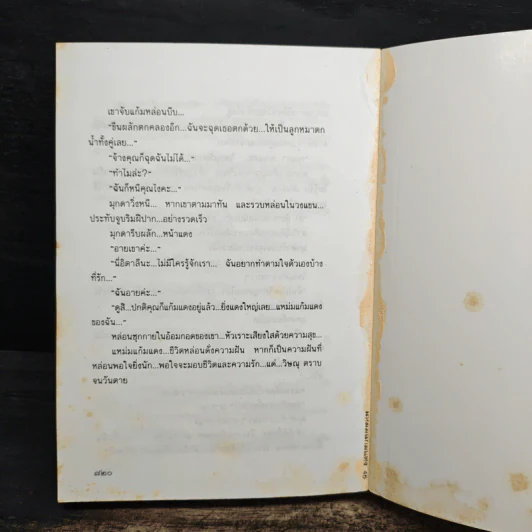 เขาจับแก้มหล่อนบีบ...
"ขืนผลักตกคลองอีก...ฉันจะฉุดเธอตกด้วย...ให้เป็นลูกหมาตก
น้ำทั้งคู่เลย..."
"จ้างคุณก็ฉุดฉันไม่ได้..."
"ทำไมล่ะ?"
"ฉันก็หนีคุณไงคะ..."
มุกดาวิ่งหนี... หากเขาตามมาทัน และรวบหล่อนในวงแขน...
ประทับจูบริมฝีปาก...อย่างรวดเร็ว
มุกดารีบผลัก...หน้าแดง
"อายเขาค่ะ..."
"นี่อิตาลีนะ...ไม่มีใครรู้จักเรา... ฉันอยากทำตามใจตัวเองบ้าง
ที่รัก..."
"ฉันอายค่ะ..."
"ดูสิ...ปกติคุณก็แก้มแดงอยู่แล้ว...ยิ่งแดงใหญ่เลย...แหม่มแก้มแดง
ของฉัน..."
หล่อนซุกกายในอ้อมกอดของเขา...หัวเราะเสียงใสด้วยความสุข...
แหม่มแก้มแดง...ชีวิตหล่อนดั่งความฝัน หากก็เป็นความฝันที่
หล่อนพอใจยิ่งนัก...พอใจจะมอบชีวิตและความรัก...แด่...วิษณุ ตราบ
จนวันตาย
๘๒๐